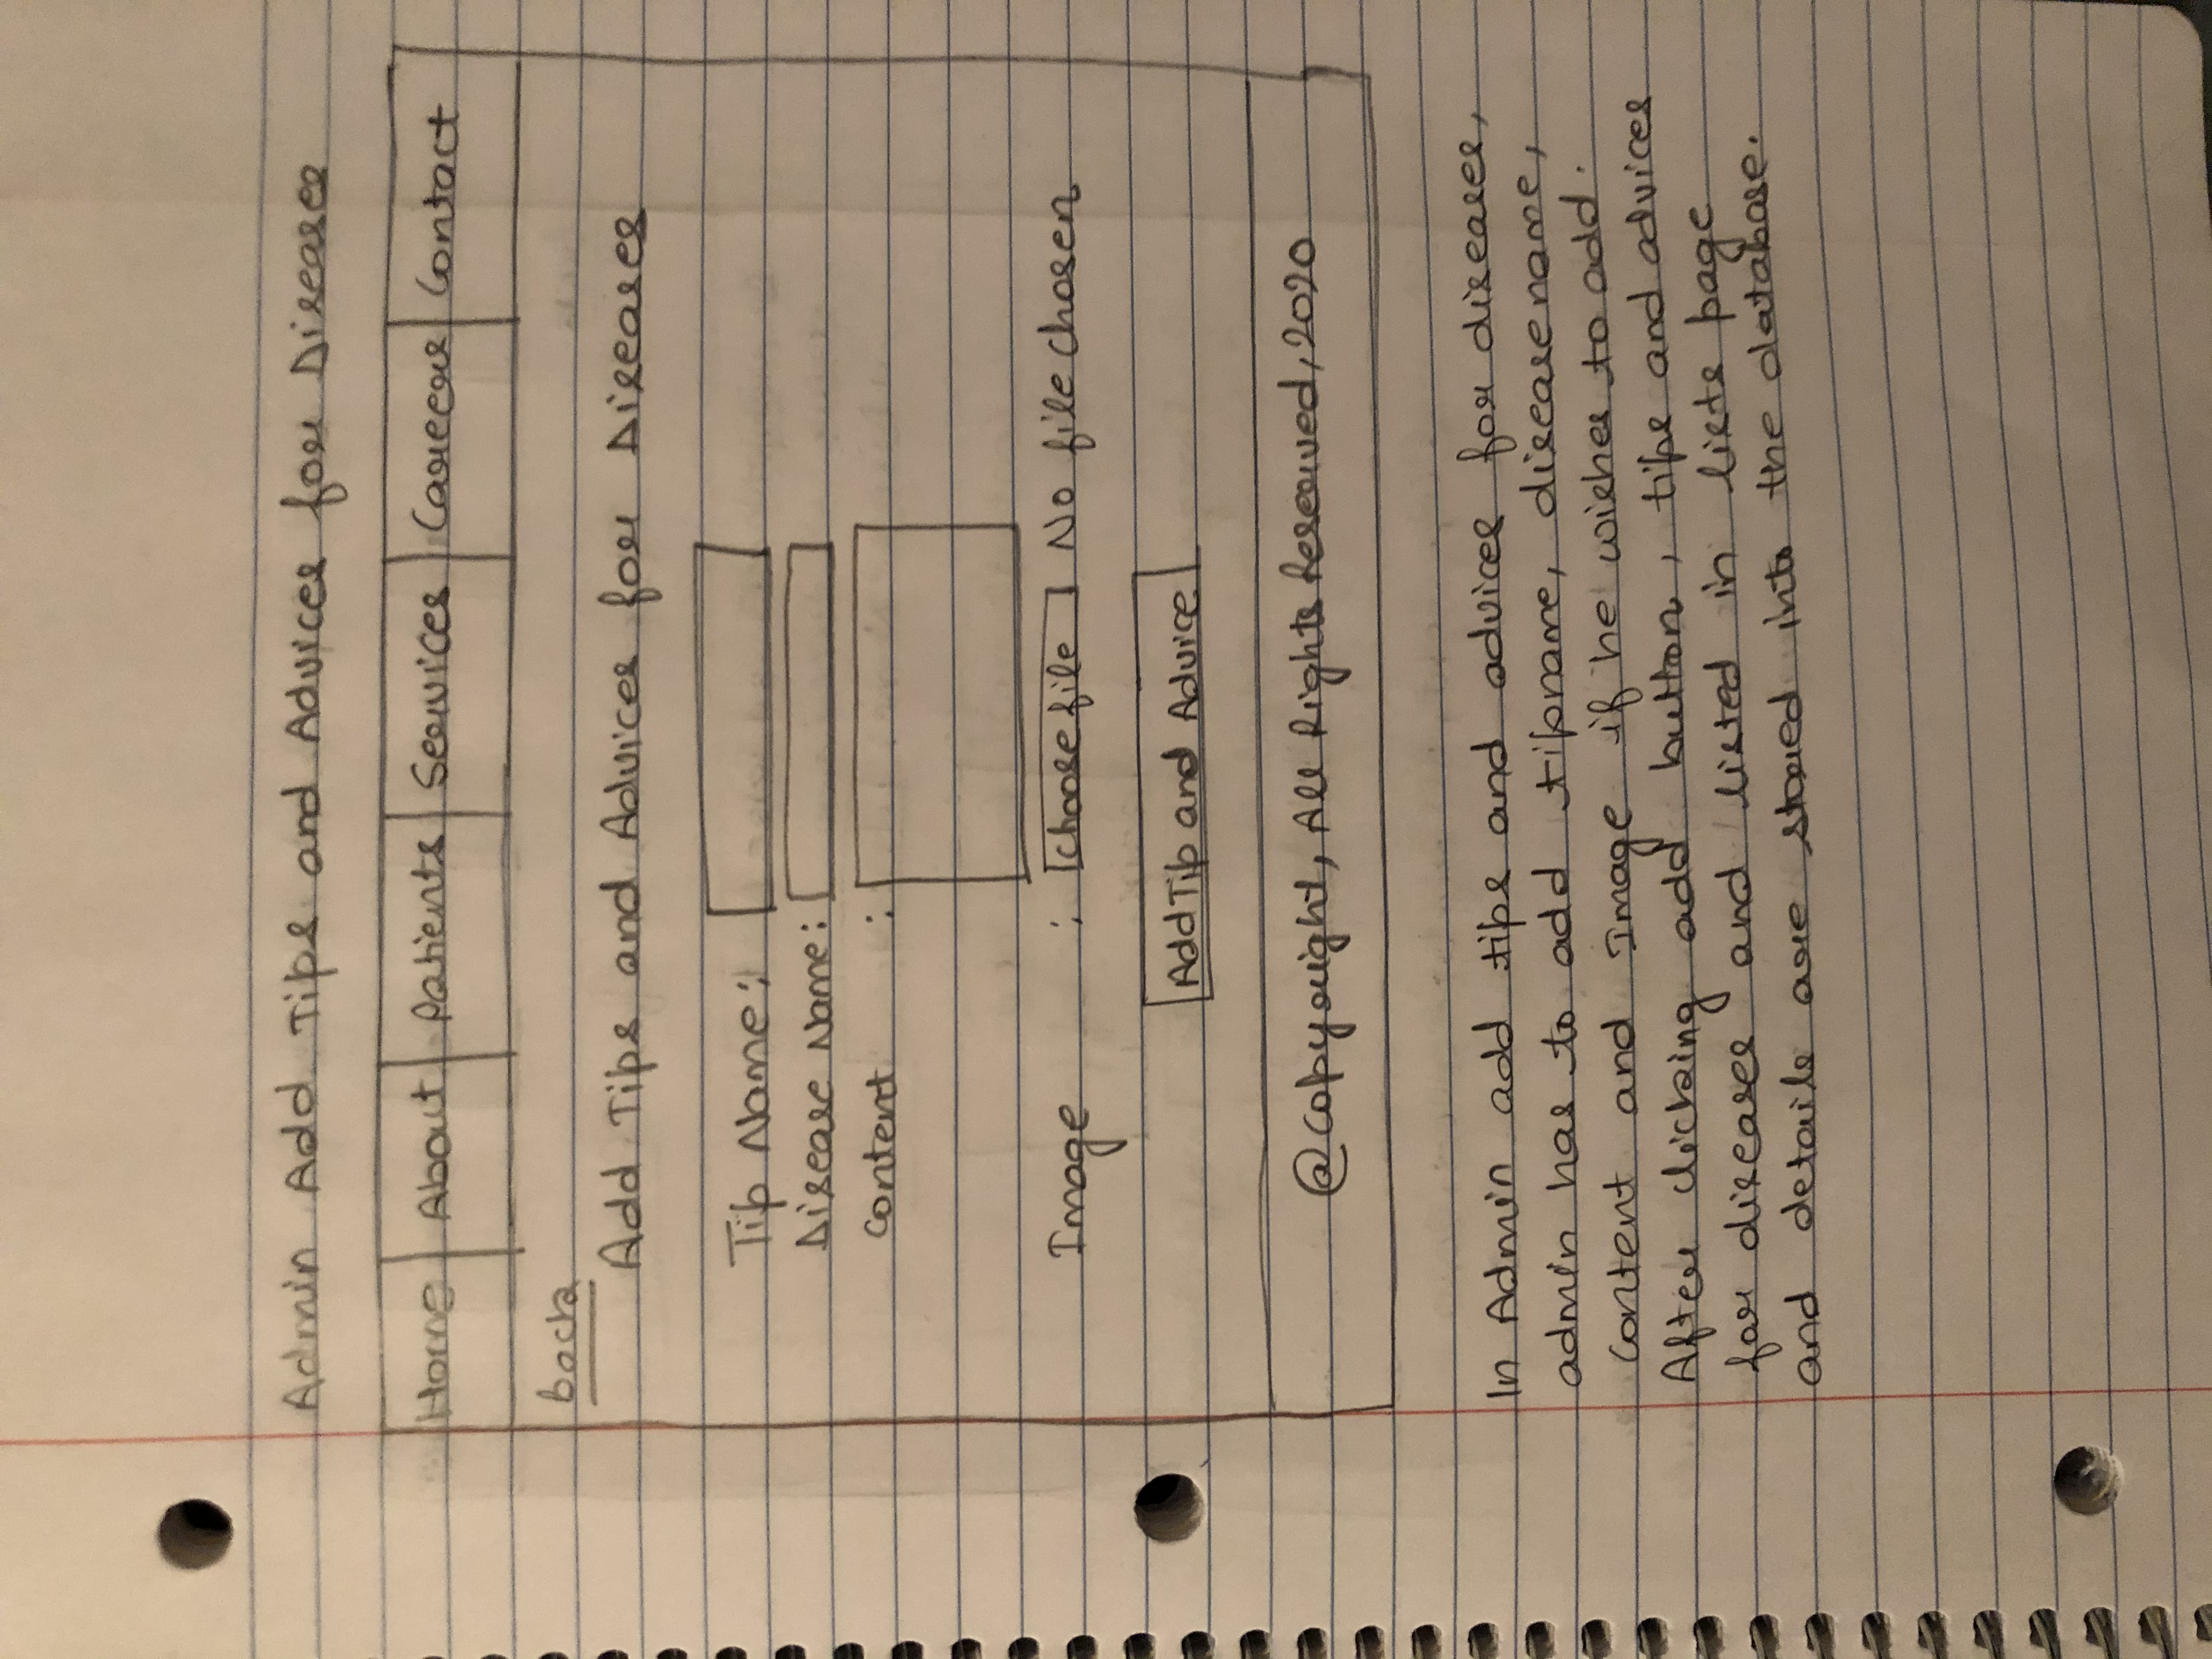 Admin Add Tips and Advices for Diseases
Home About Patients Services Careers Contact
back
Add Tips and Advices for Diseases
Tip Name:
Disease Name:
Content :
Image : Choose file No file chosen
Add Tip and Advice
@copyright, All Rights Reserved, 2020
In Admin add tips and advices for diseases,
admin has to add tipname, diseasename,
content and Image if he wishes to add.
After clicking add button, tips and advices
for diseases and listed in lists page
and details are stored into the database.